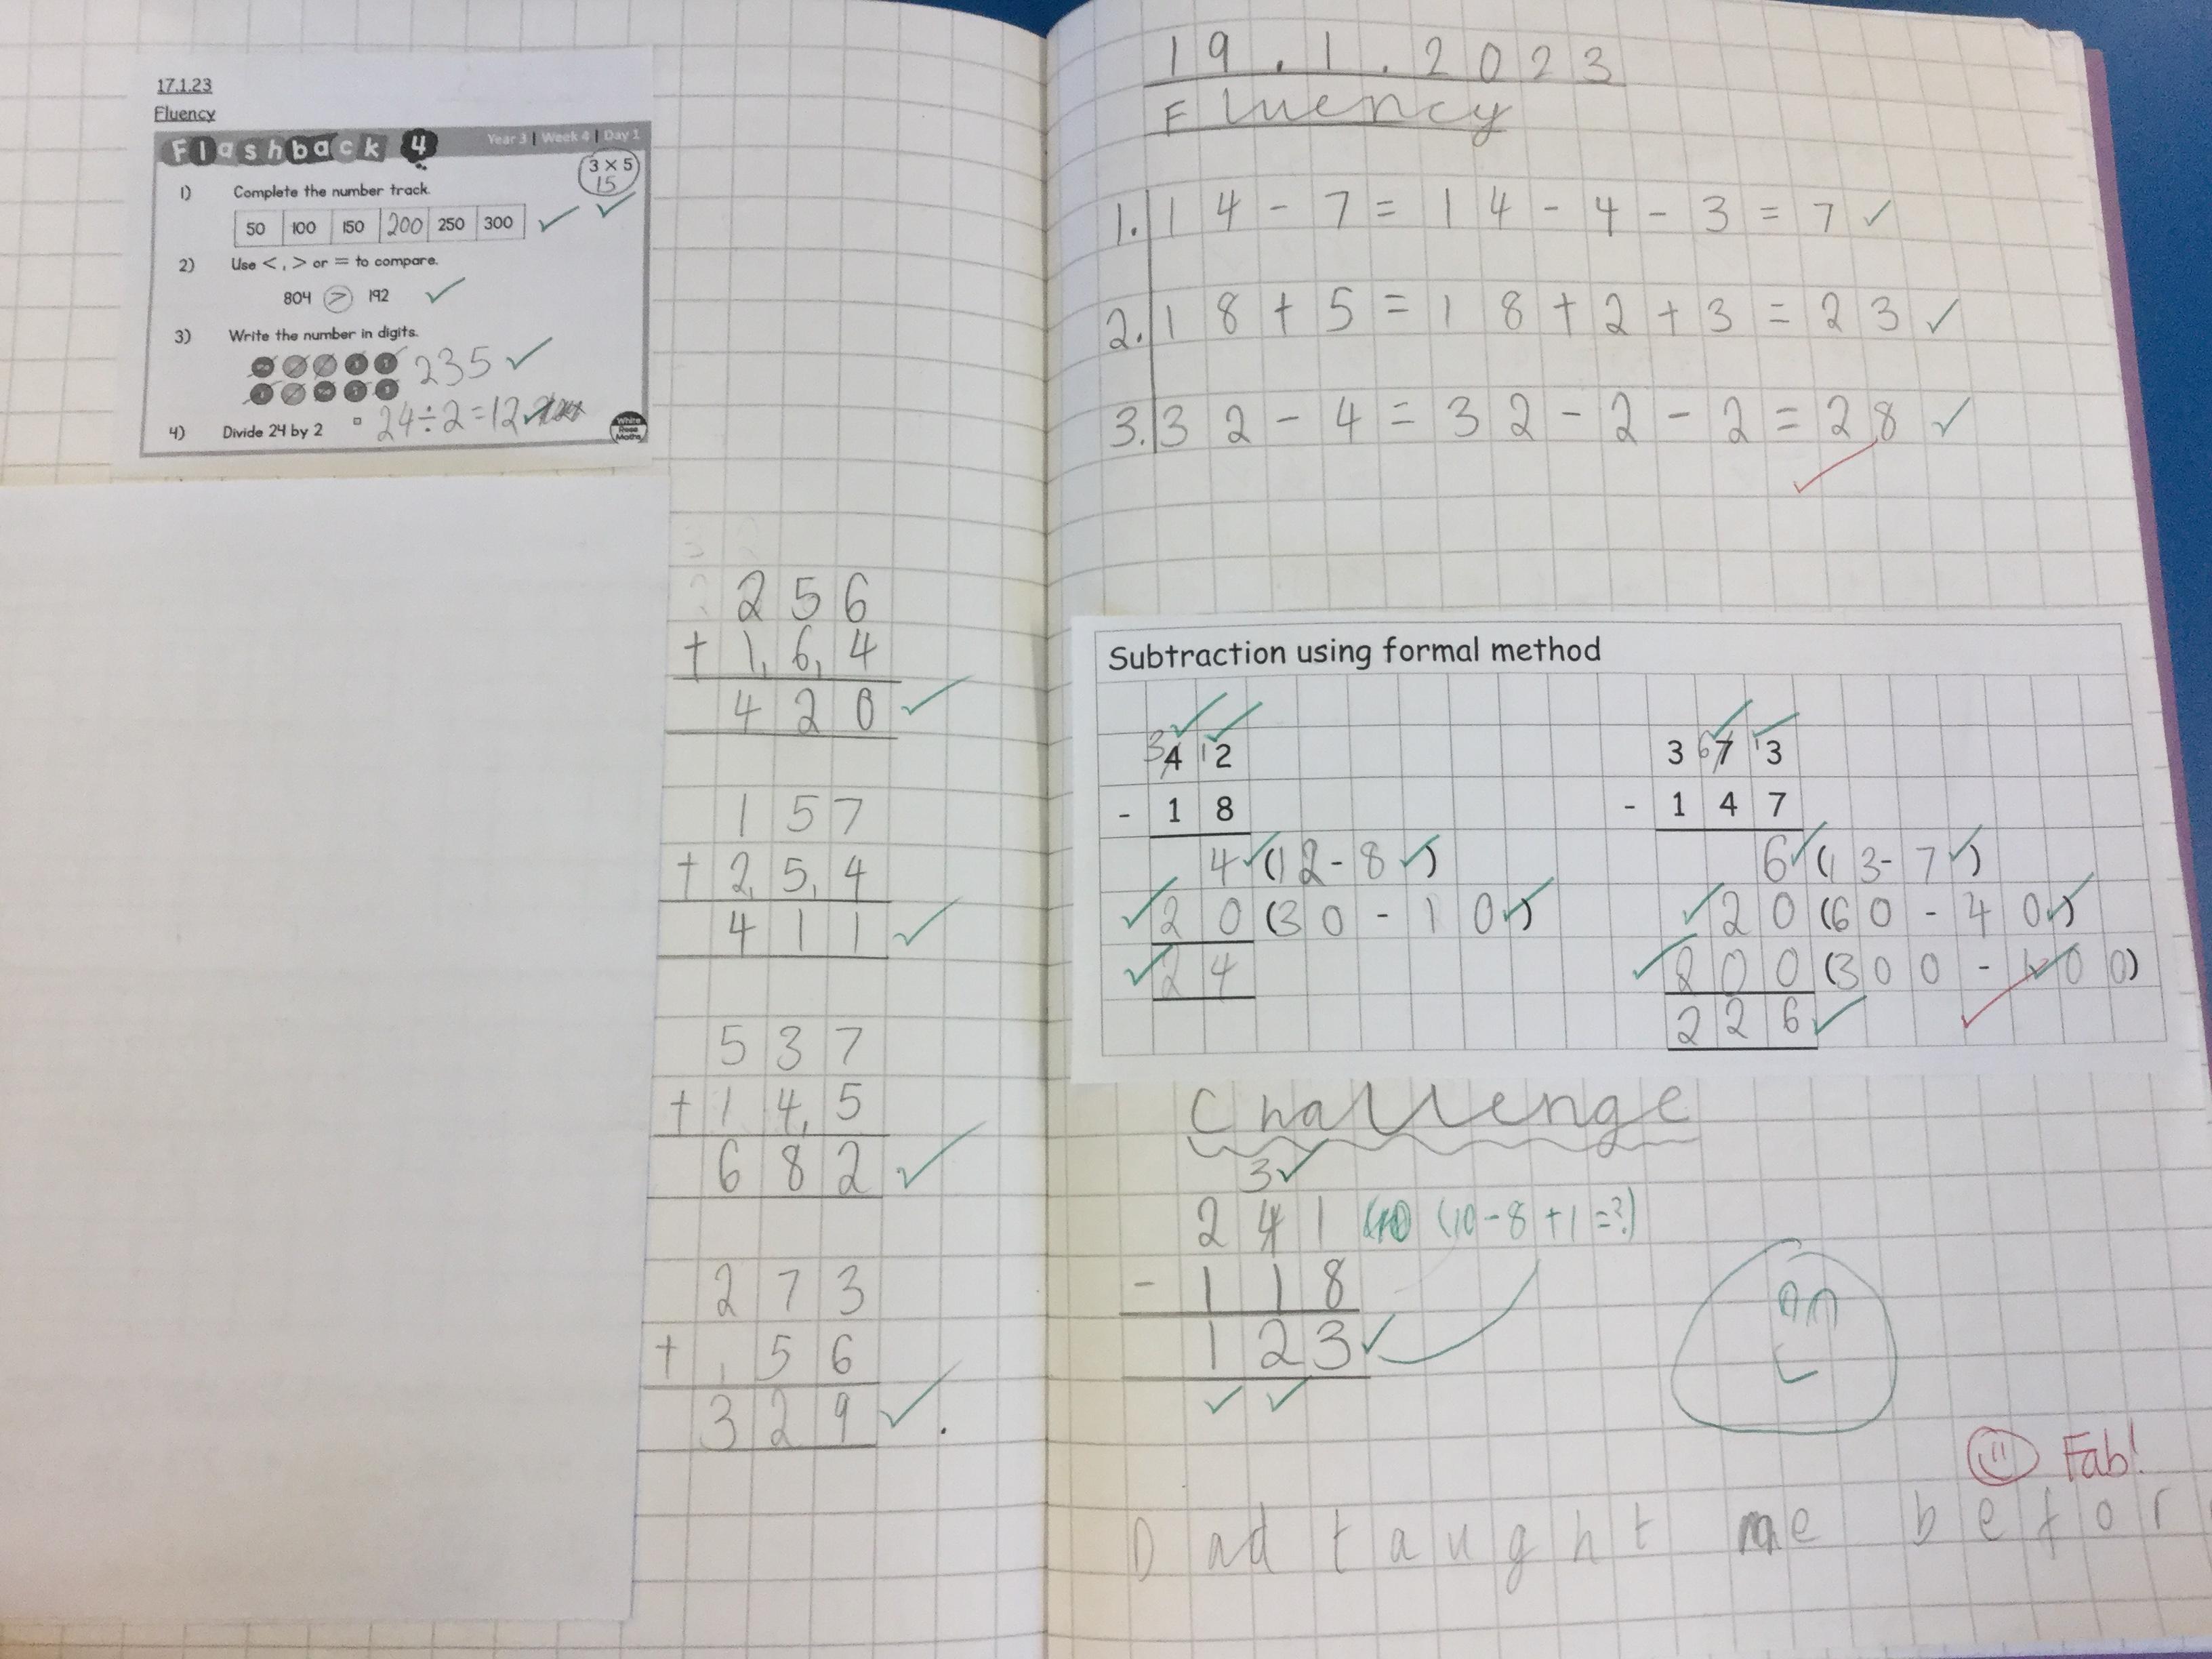 17.1.23
Fluency
Flashback 4 Year 3 | Week 4 | Day 1
3 × 5
15
1) Complete the number track.
50 100 150 200 250 300
2) Use <, > or = to compare.
804 > 192
3) Write the number in digits.
235
24÷2=12
4) Divide 24 by 2
White Rose Maths
256
+ 164
1 1
420
157
+ 254
1 1
411
537
+ 145
1
682
273
+ 56
1
329
19.1.2023
Fluency
1. 14-7=14-4-3=7
2. 18+5=18+2+3=23
3. 32-4=32-2-2=28
Subtraction using formal method
3 4 1 2
- 1 8
4 (12-8)
20 (30-10)
24
3 6 7 1 3
- 1 4 7
6 (13-7)
20 (60-40)
200 (300-100)
226
Challenge
3
241 (10-8+1=?)
- 118
123
Fab!
Dad taught me befor